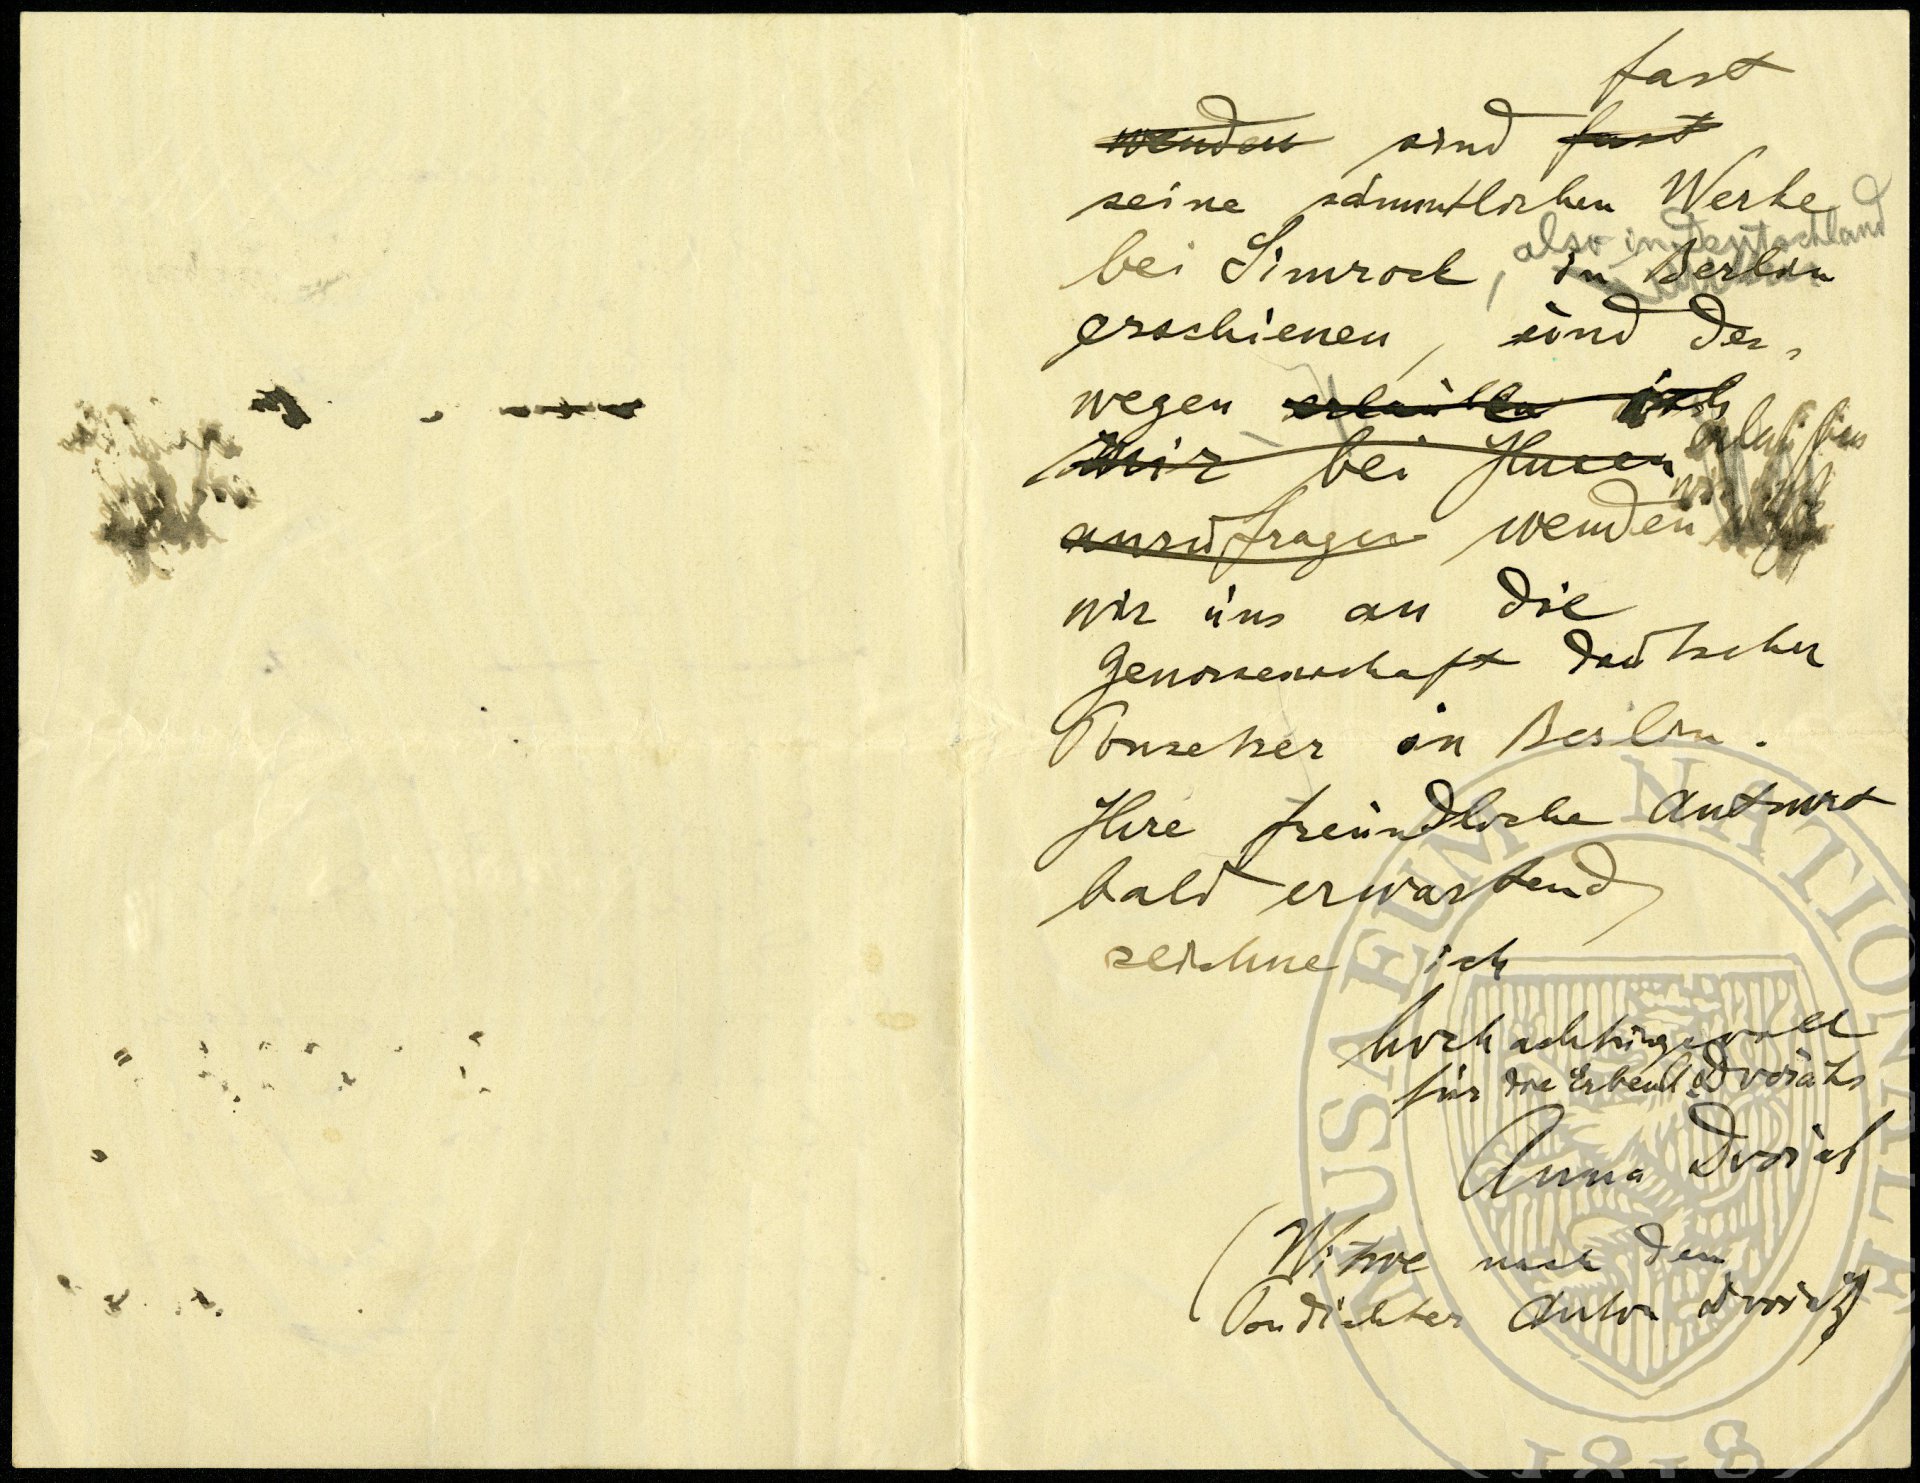 fast
wenden sind fast
seine sämmtlichen Werke
also in Deutschland
bei Simrock, in Berlin
erschienen, und des-
wegen erlaube ich
mir bei Ihnen
erlauben
wir
anzufragen wenden
wir uns an die
Genossenschaft deutscher
Tonsetzer in Berlin.
Ihre freundliche Antwort
bald erwartend
zeichne ich
hochachtungsvoll
für die Erben Dvořáks
Anna Dvořák
(Witwe nach dem
Tondichter Anton Dvořák)
MUSAEUM NATIONALE
1818